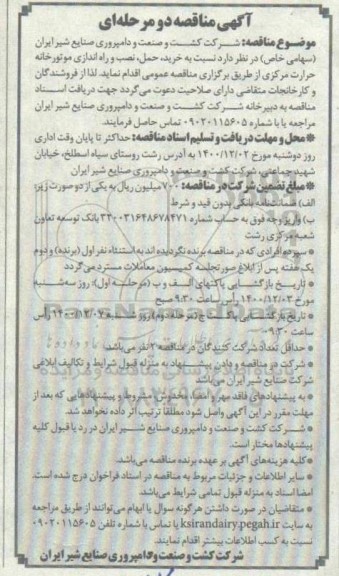 آگهی مناقصه دو مرحله‌ای
موضوع مناقصه: شرکت کشت و صنعت و دامپروری صنایع شیر ایران
(سهامی خاص) در نظر دارد نسبت به خرید، حمل، نصب و راه اندازی موتورخانه
حرارت مرکزی از طریق برگزاری مناقصه عمومی اقدام نماید. لذا از فروشندگان
و کارخانجات متقاضی دارای صلاحیت دعوت می‌گردد جهت دریافت اسناد
مناقصه به دبیرخانه شرکت کشت و صنعت و دامپروری صنایع شیر ایران
مراجعه یا با شماره ۰۹۰۲۰۱۱۵۶۰۵ تماس حاصل فرمایند.
* محل و مهلت دریافت و تسلیم اسناد مناقصه: حداکثر تا پایان وقت اداری
روز دوشنبه مورخ ۱۴۰۰/۱۲/۰۲ به آدرس رشت روستای سیاه اسطلخ، خیابان
شهید جماعتی، شرکت کشت و صنعت و دامپروری صنایع شیر ایران
* مبلغ تضمین شرکت در مناقصه: ۷۰۰ میلیون ریال به یکی از دو صورت زیر:
الف) ضمانتنامه بانکی بدون قید و شرط
ب) واریز وجه فوق به حساب شماره ۳۲۰۰۳۱۶۴۸۶۷۸۴۷۱ بانک توسعه تعاون
شعبه مرکزی رشت
* سپرده افرادی که در مناقصه برنده نگردیده اند به استثناء نفر اول (برنده) و دوم
یک هفته پس از ابلاغ صورتجلسه کمیسیون معاملات مسترد می‌گردد
* تاریخ بازگشایی پاکتهای الف و ب (مرحله اول): روز سه‌شنبه
مورخ ۱۴۰۰/۱۲/۰۳ رأس ساعت ۹:۳۰ صبح
* تاریخ بازگشایی پاکت ج (مرحله دوم) روز شنبه ۱۴۰۰/۱۲/۰۷ رأس
ساعت ۰۹:۳۰
* حداقل تعداد شرکت کنندگان در مناقصه ۲ نفر می‌باشد.
* شرکت در مناقصه و دادن پیشنهاد به منزله قبول شرایط و تکالیف ابلاغی
شرکت صنایع شیر ایران می‌باشد
* به پیشنهادهای فاقد مهر و امضا، مخدوش، مشروط و پیشنهادهایی که بعد از
مهلت مقرر در این آگهی واصل شود مطلقا ترتیب اثر داده نخواهد شد.
* شرکت کشت و صنعت و دامپروری صنایع شیر ایران در رد یا قبول کلیه
پیشنهادها مختار است.
* کلیه هزینه‌های آگهی بر عهده برنده مناقصه می‌باشد.
* سایر اطلاعات و جزئیات مربوط به مناقصه در اسناد فراخوان درج شده است.
امضا اسناد به منزله قبول تمامی شرایط می‌باشد.
* متقاضیان در صورت داشتن هرگونه سوال یا ابهام می‌توانند از طریق مراجعه
به سایت ksirandairy.pegah.ir یا تماس با شماره تلفن ۰۹۰۲۰۱۱۵۶۰۵
نسبت به کسب اطلاعات بیشتر اقدام نمایند.
شرکت کشت و صنعت و دامپروری صنایع شیر ایران